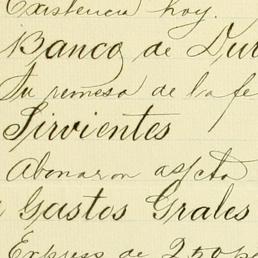 Existencia hoy.
Banco de Dur
Su remesa de la fe
Sirvientes
Abonaron
Gastos Grales
Express de 250 p